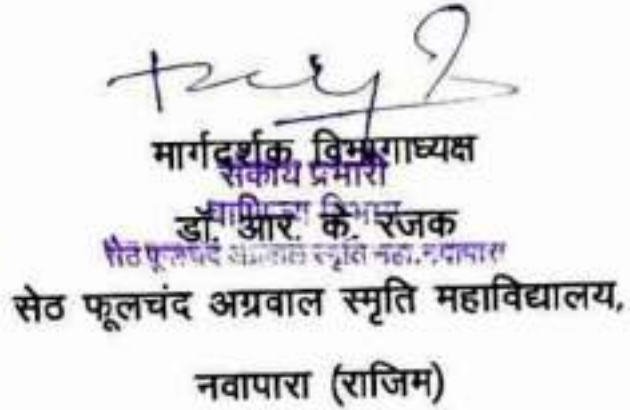 मार्गदर्शक विभागाध्यक्ष
संकाय प्रभारी
डॉ. आर. के. रजक
वाणिज्य विभाग
सेठ फूलचंद अग्रवाल स्मृति महा. नवापारा
सेठ फूलचंद अग्रवाल स्मृति महाविद्यालय,
नवापारा (राजिम)